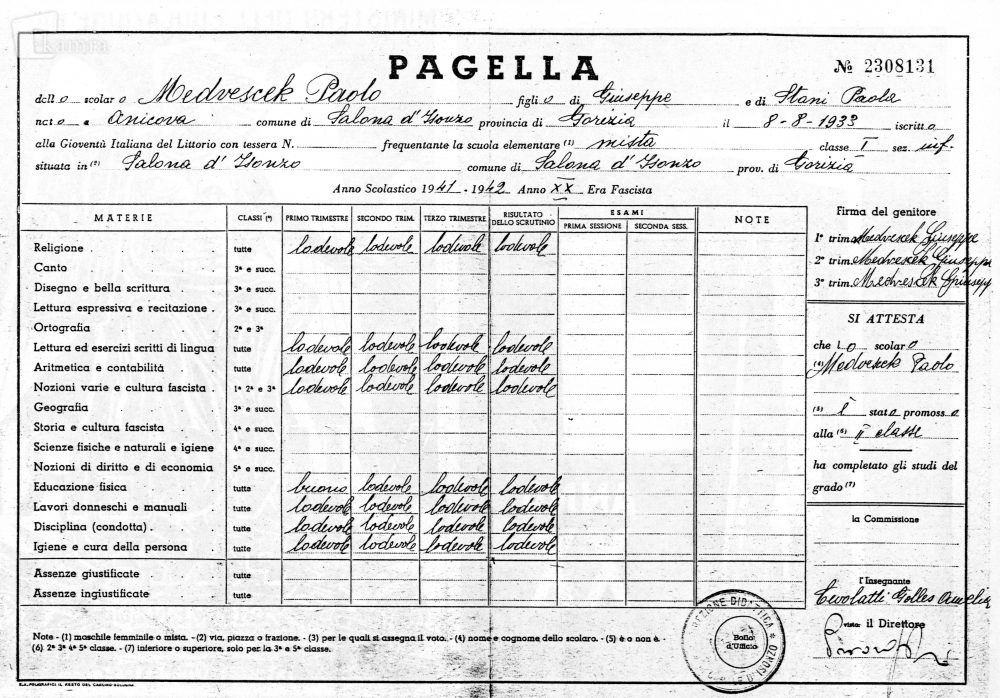 PAGELLA
№ 2308131
dell o scolar o Medvescek Paolo figli o di Giuseppe e di Stani Paola
nat o a Anicova comune di Salona d'Isonzo provincia di Gorizia il 8-8-1933 iscritt o
alla Gioventù Italiana del Littorio con tessera N. frequentante la scuola elementare (1) mista classe I sez. inf.
situata in (2) Salona d'Isonzo comune di Salona d'Isonzo prov. di Gorizia
Anno Scolastico 1941 - 1942 Anno XX Era Fascista
MATERIE CLASSI (3) PRIMO TRIMESTRE SECONDO TRIM. TERZO TRIMESTRE RISULTATO DELLO SCRUTINIO ESAMI PRIMA SESSIONE SECONDA SESS. NOTE
Religione tutte lodevole lodevole lodevole lodevole
Canto 3ª e succ.
Disegno e bella scrittura 3ª e succ.
Lettura espressiva e recitazione 3ª e succ.
Ortografia 2ª e 3ª
Lettura ed esercizi scritti di lingua tutte lodevole lodevole lodevole lodevole
Aritmetica e contabilità tutte lodevole lodevole lodevole lodevole
Nozioni varie e cultura fascista 1ª 2ª e 3ª lodevole lodevole lodevole lodevole
Geografia 3ª e succ.
Storia e cultura fascista 4ª e succ.
Scienze fisiche e naturali e igiene 4ª e succ.
Nozioni di diritto e di economia 5ª e succ.
Educazione fisica tutte buono lodevole lodevole lodevole
Lavori donneschi e manuali tutte lodevole lodevole lodevole lodevole
Disciplina (condotta) tutte lodevole lodevole lodevole lodevole
Igiene e cura della persona tutte lodevole lodevole lodevole lodevole
Assenze giustificate tutte
Assenze ingiustificate tutte
Firma del genitore
1° trim. Medvescek Giuseppe
2° trim. Medvescek Giuseppe
3° trim. Medvescek Giusepp
SI ATTESTA
che l o scolar o
(4) Medvescek Paolo
(5) è stat o promoss o
alla (6) II classe
ha completato gli studi del
grado (7)
la Commissione
l'Insegnante
Golles Amelia
visto: il Direttore
DIREZIONE DIDATTICA
Bollo
d'Ufficio
D'ISONZO
Note - (1) maschile femminile o mista. - (2) via, piazza o frazione. - (3) per le quali si assegna il voto. - (4) nome e cognome dello scolaro. - (5) è o non è. -
(6) 2ª 3ª 4ª 5ª classe. - (7) inferiore o superiore, solo per la 3ª e 5ª classe.
S.A. POLIGRAFICI IL RESTO DEL CARLINO BOLOGNA